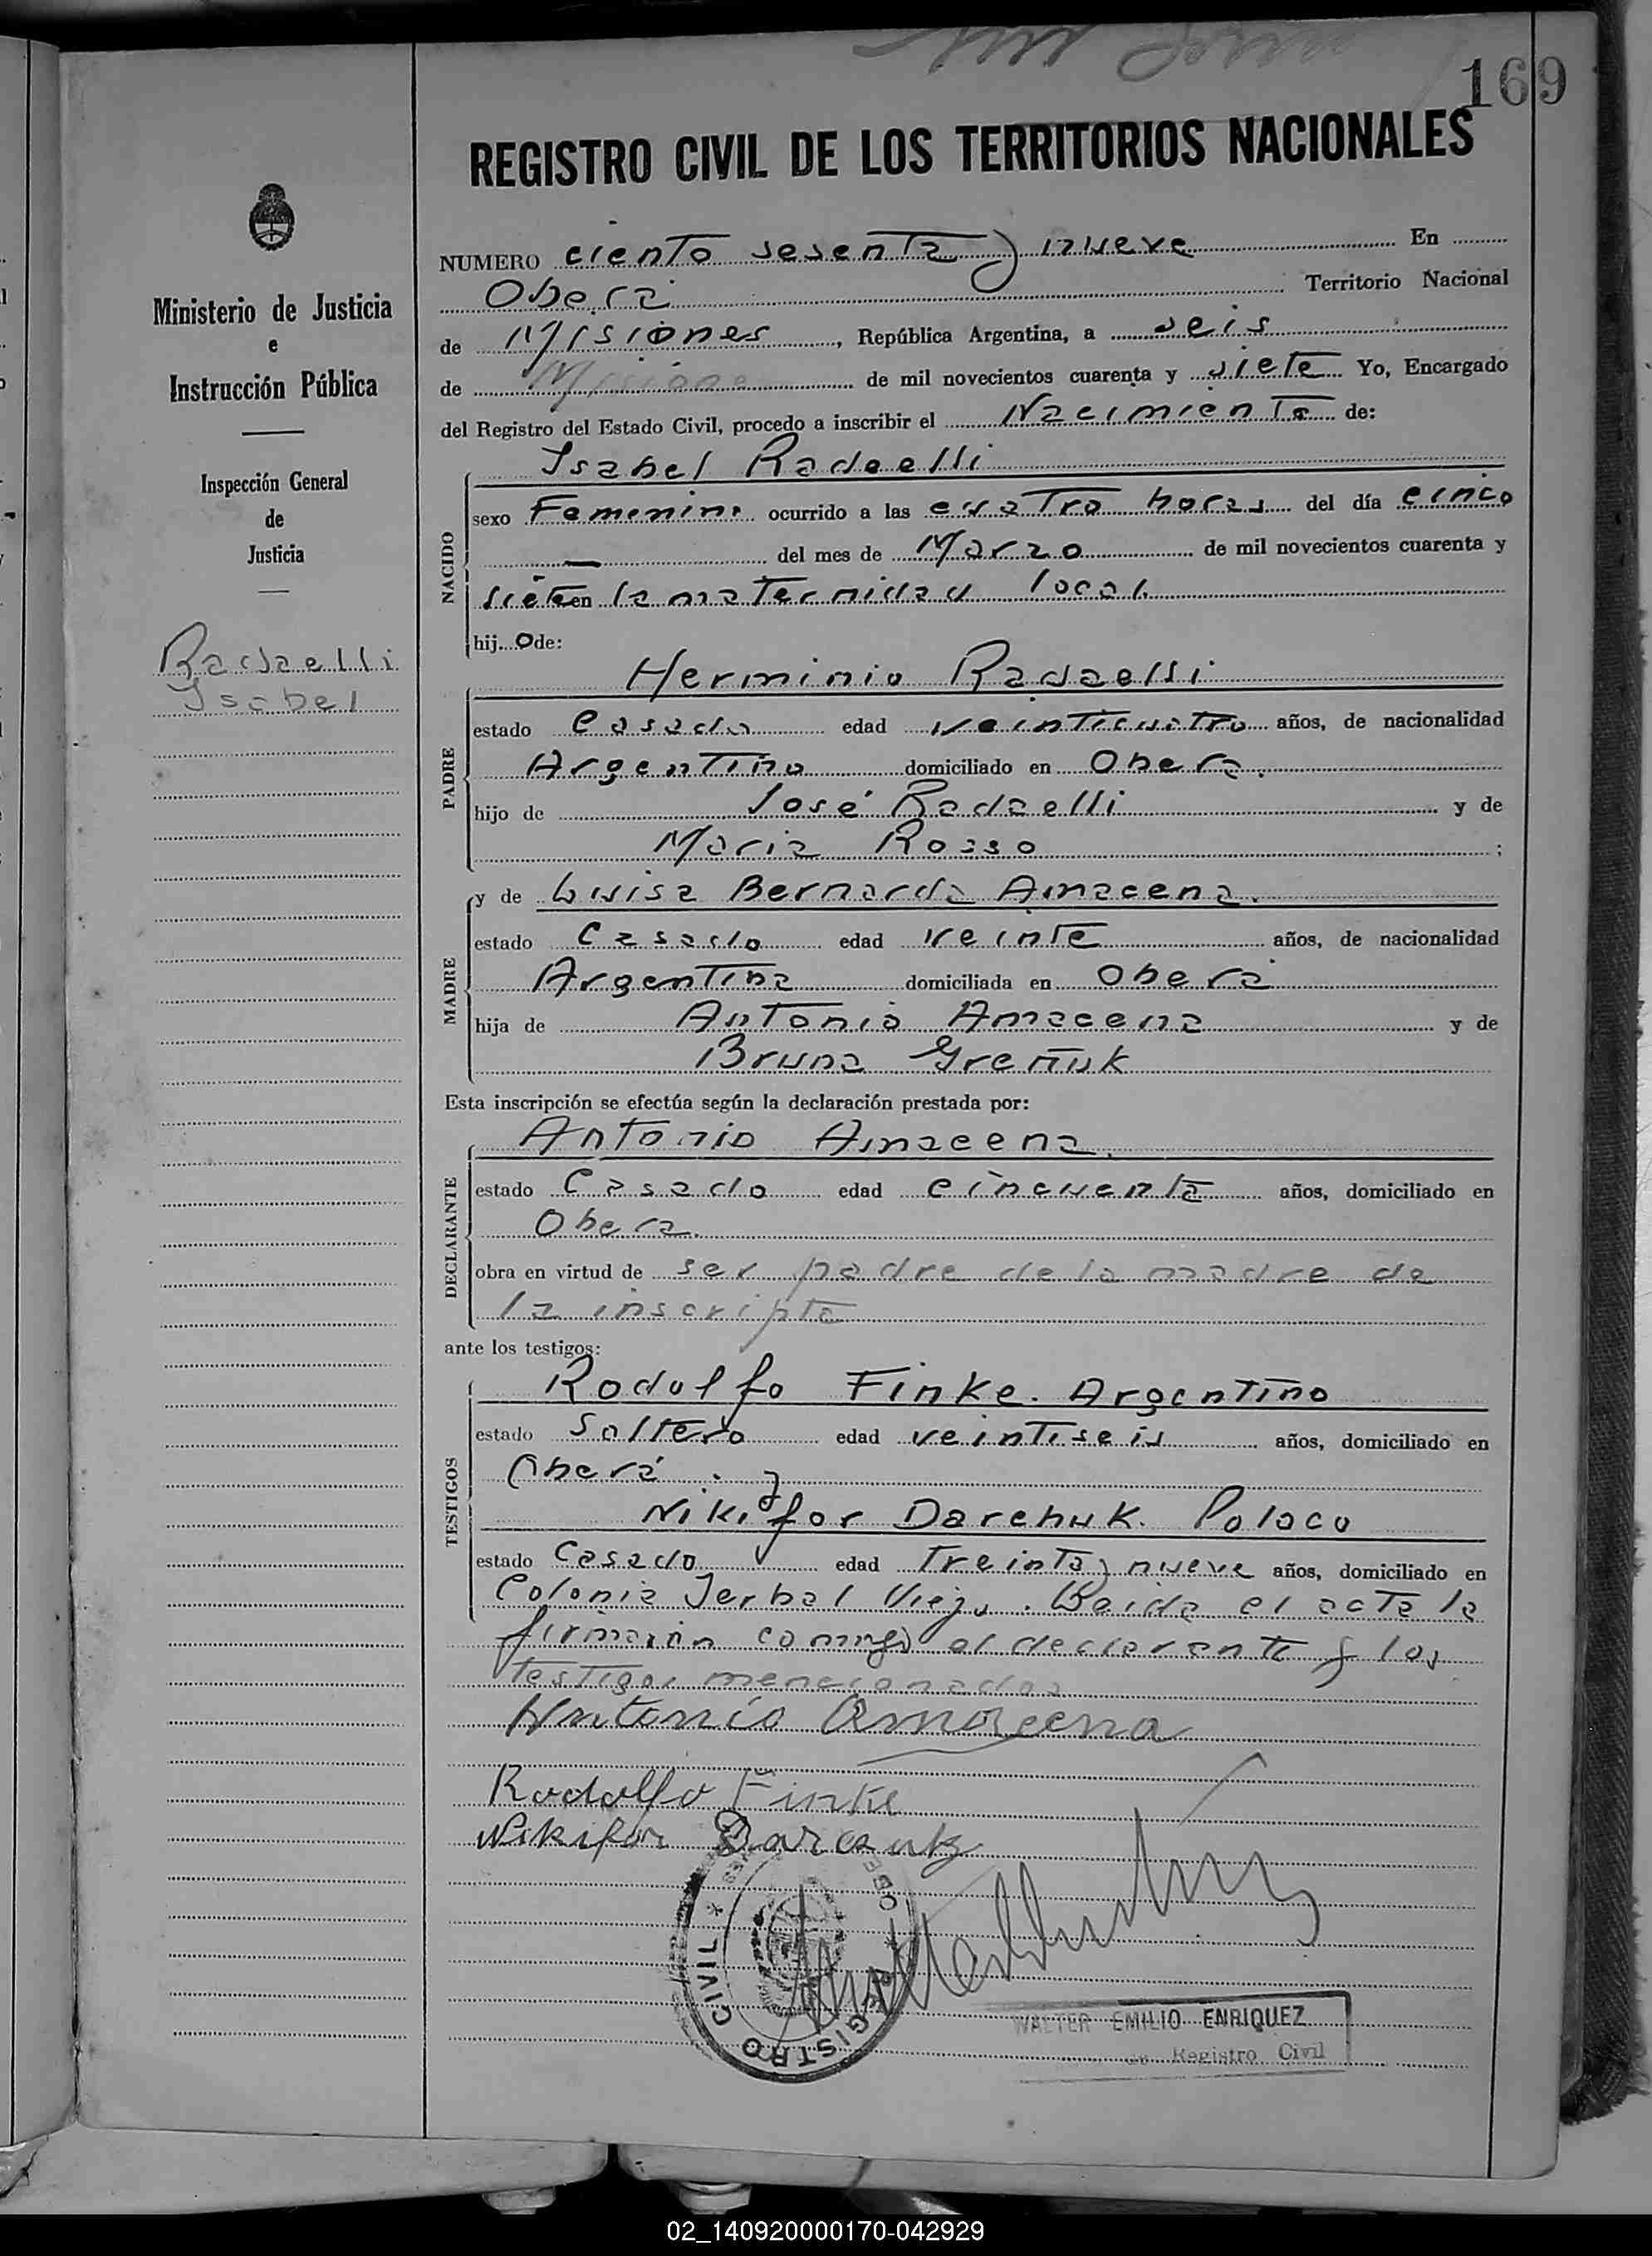 169
REGISTRO CIVIL DE LOS TERRITORIOS NACIONALES
NUMERO ciento sesenta y nueve En
Oberá Territorio Nacional
de Misiones, República Argentina, a seis
de de mil novecientos cuarenta y siete Yo, Encargado
del Registro del Estado Civil, procedo a inscribir el Nacimiento de:
Ministerio de Justicia
e
Instrucción Pública
Inspección General
de
Justicia
Radaelli
Isabel
NACIDO
Isabel Radaelli
sexo Femenino ocurrido a las cuatro horas del día cinco
— del mes de Marzo de mil novecientos cuarenta y
siete en la maternidad local.
hij o de:
PADRE
Herminio Radaelli
estado Casado edad veinticuatro años, de nacionalidad
Argentino domiciliado en Obera.
hijo de José Radaelli y de
Maria Rosso ;
MADRE
y de Luisa Bernarda Amacena.
estado Casado edad veinte años, de nacionalidad
Argentina domiciliada en Oberá
hija de Antonio Amacena y de
Bruna Greñuk
Esta inscripción se efectúa según la declaración prestada por:
DECLARANTE
Antonio Amacena.
estado Casado edad cincuenta años, domiciliado en
Obera.
obra en virtud de ser padre de la madre de
la inscripta
ante los testigos:
TESTIGOS
Rodolfo Finke. Argentino
estado Soltero edad veintiseis años, domiciliado en
Oberá. y
Nikifor Darchuk. Polaco
estado Casado edad treinta y nueve años, domiciliado en
Colonia Yerbal Viejo. Leida el acta la
firmaron comigo el declarante y los
testigos mencionados
Antonio Amacena
Rodolfo Finke
Nikifor Darczuk
REGISTRO CIVIL *
WALTER EMILIO ENRIQUEZ
Registro Civil
02_140920000170-042929